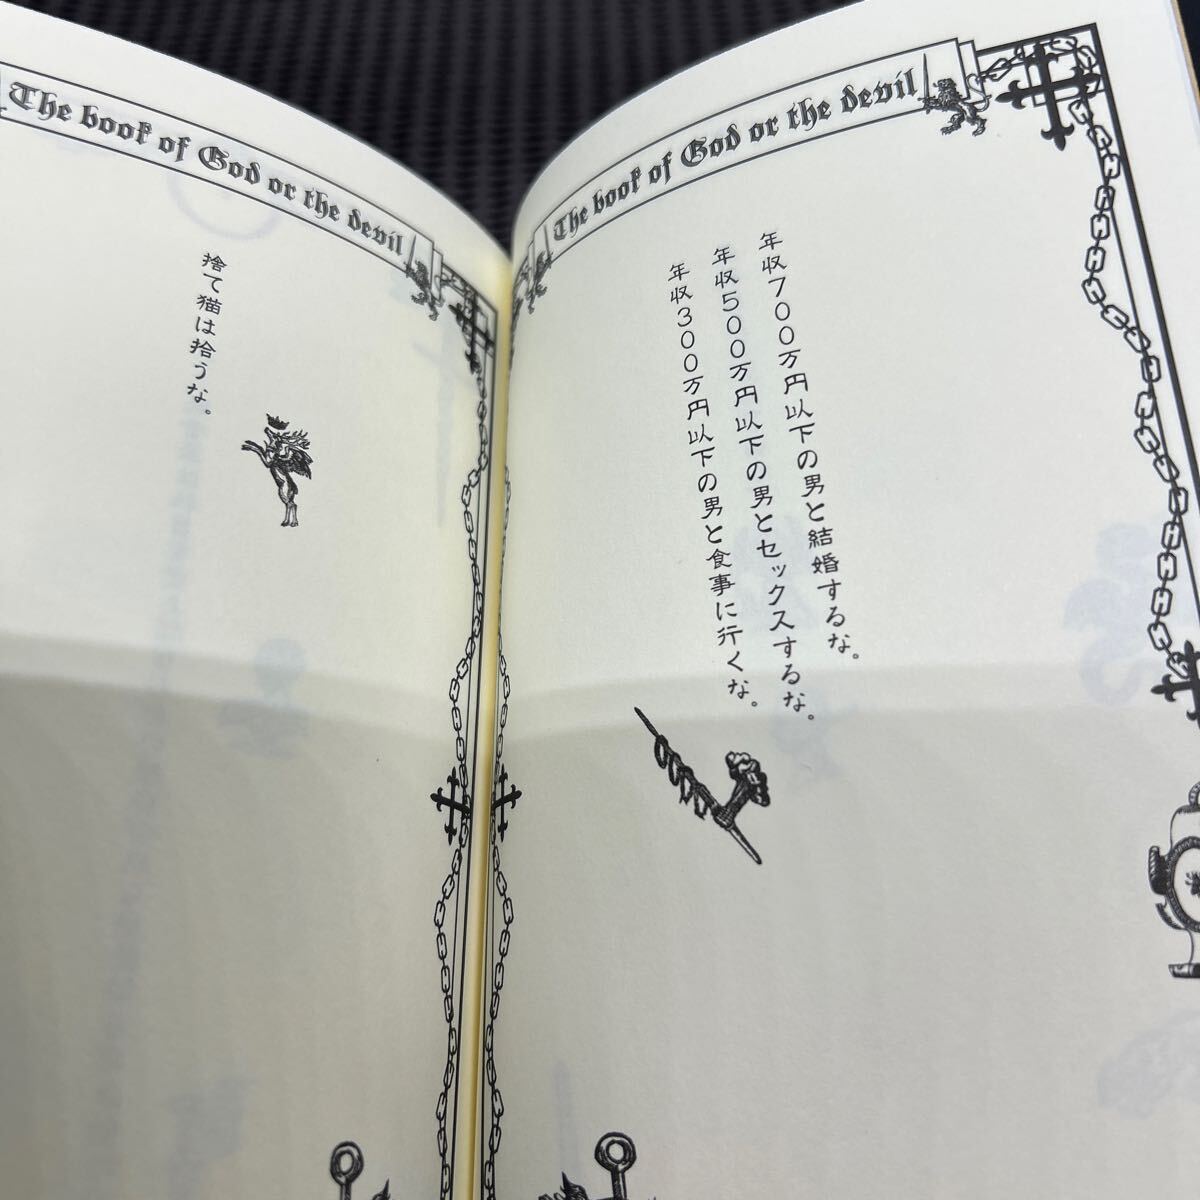 The book of God or the devil
年収７００万円以下の男と結婚するな。
年収５００万円以下の男とセックスするな。
年収３００万円以下の男と食事に行くな。
The book of God or the devil
捨て猫は拾うな。